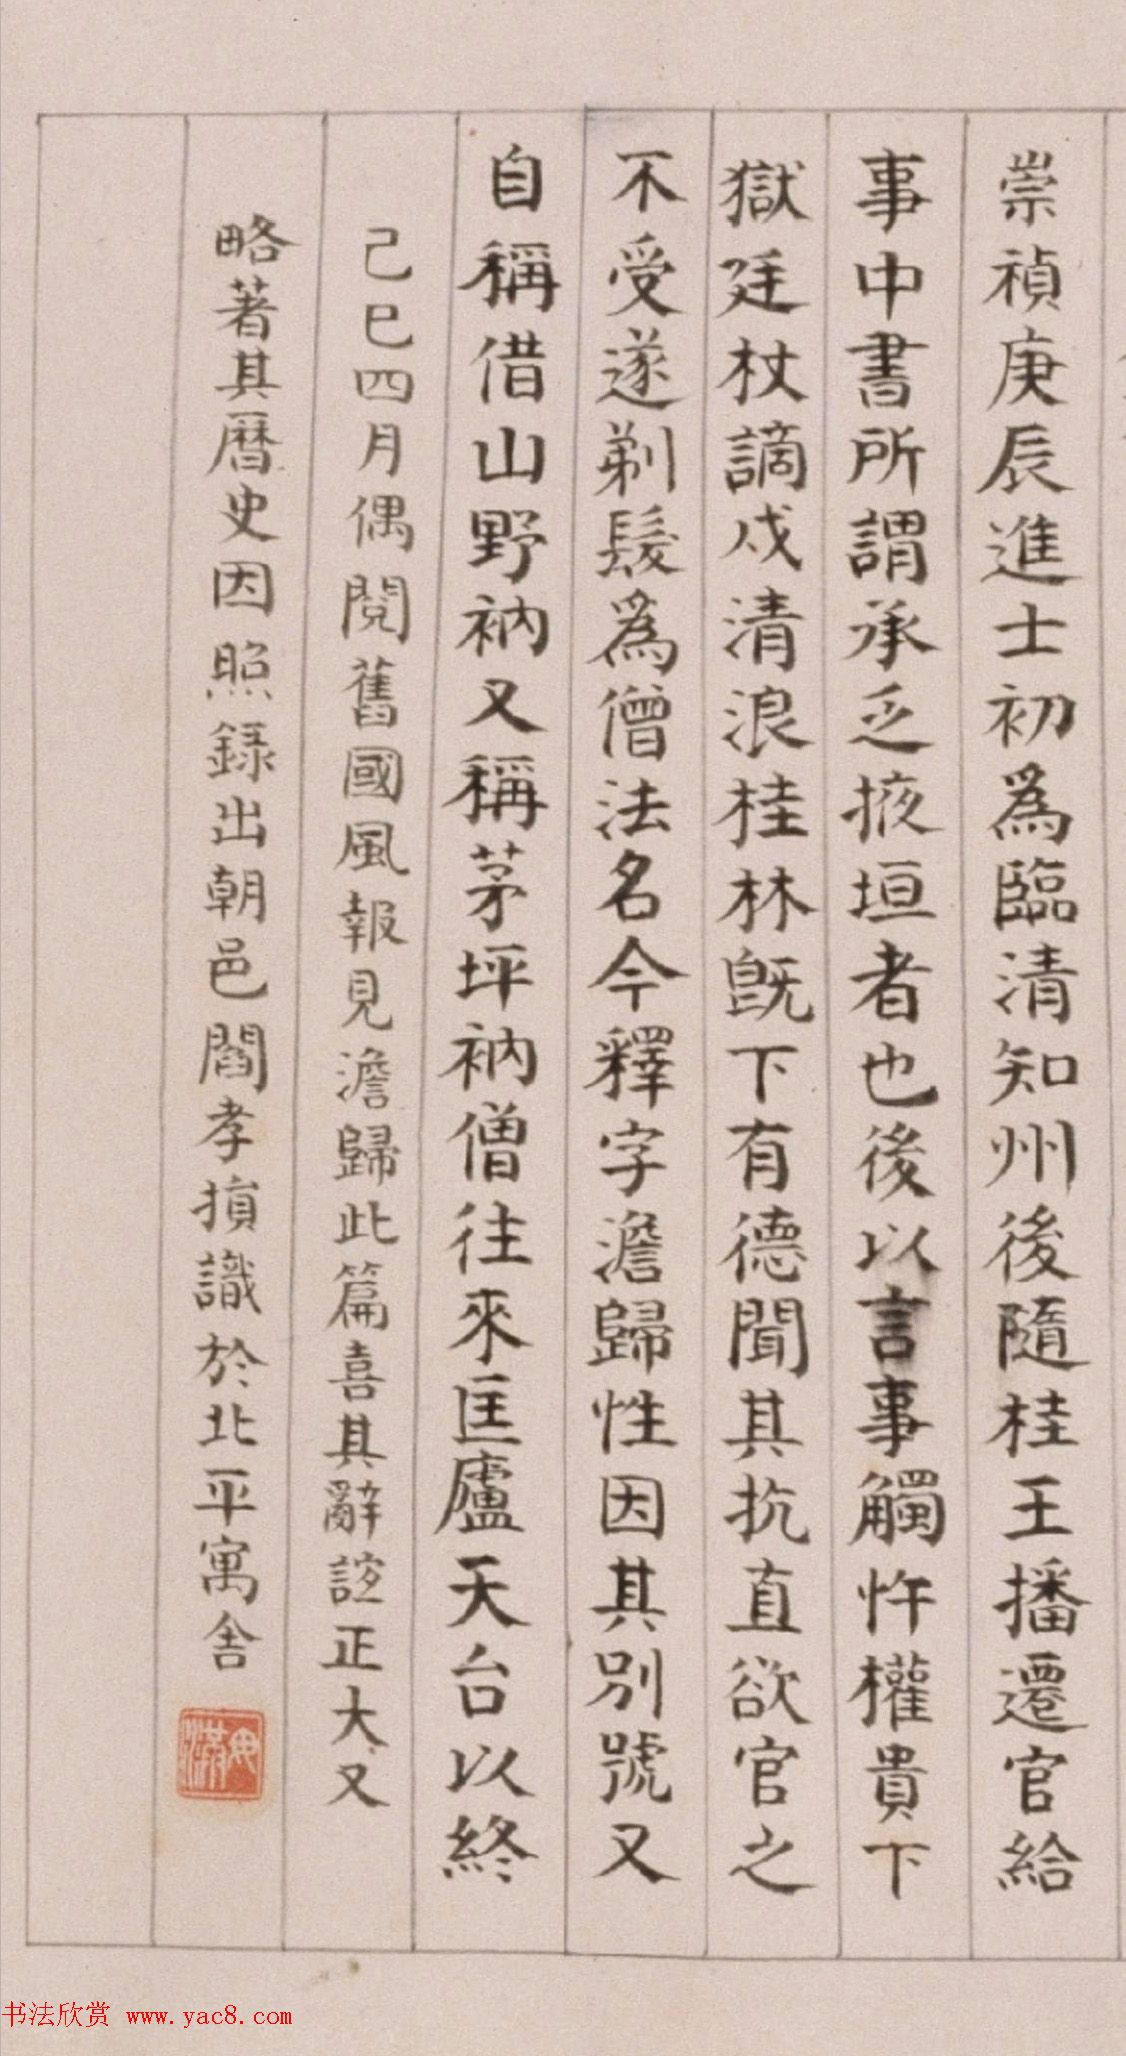 崇禎庚辰進士初為臨清知州後隨桂王播遷官給
事中書所謂承乏掖垣者也後以言事觸忤權貴下
獄廷杖謫戍清浪桂林旣下有德聞其抗直欲官之
不受遂剃髮為僧法名今釋字澹歸性因其別號又
自稱借山野衲又稱茅坪衲僧往來匡廬天台以終
己巳四月偶閱舊國風報見澹歸此篇喜其辭誼正大又
略著其曆史因照錄出朝邑閻孝損識於北平寓舍
书法欣赏 www.yac8.com